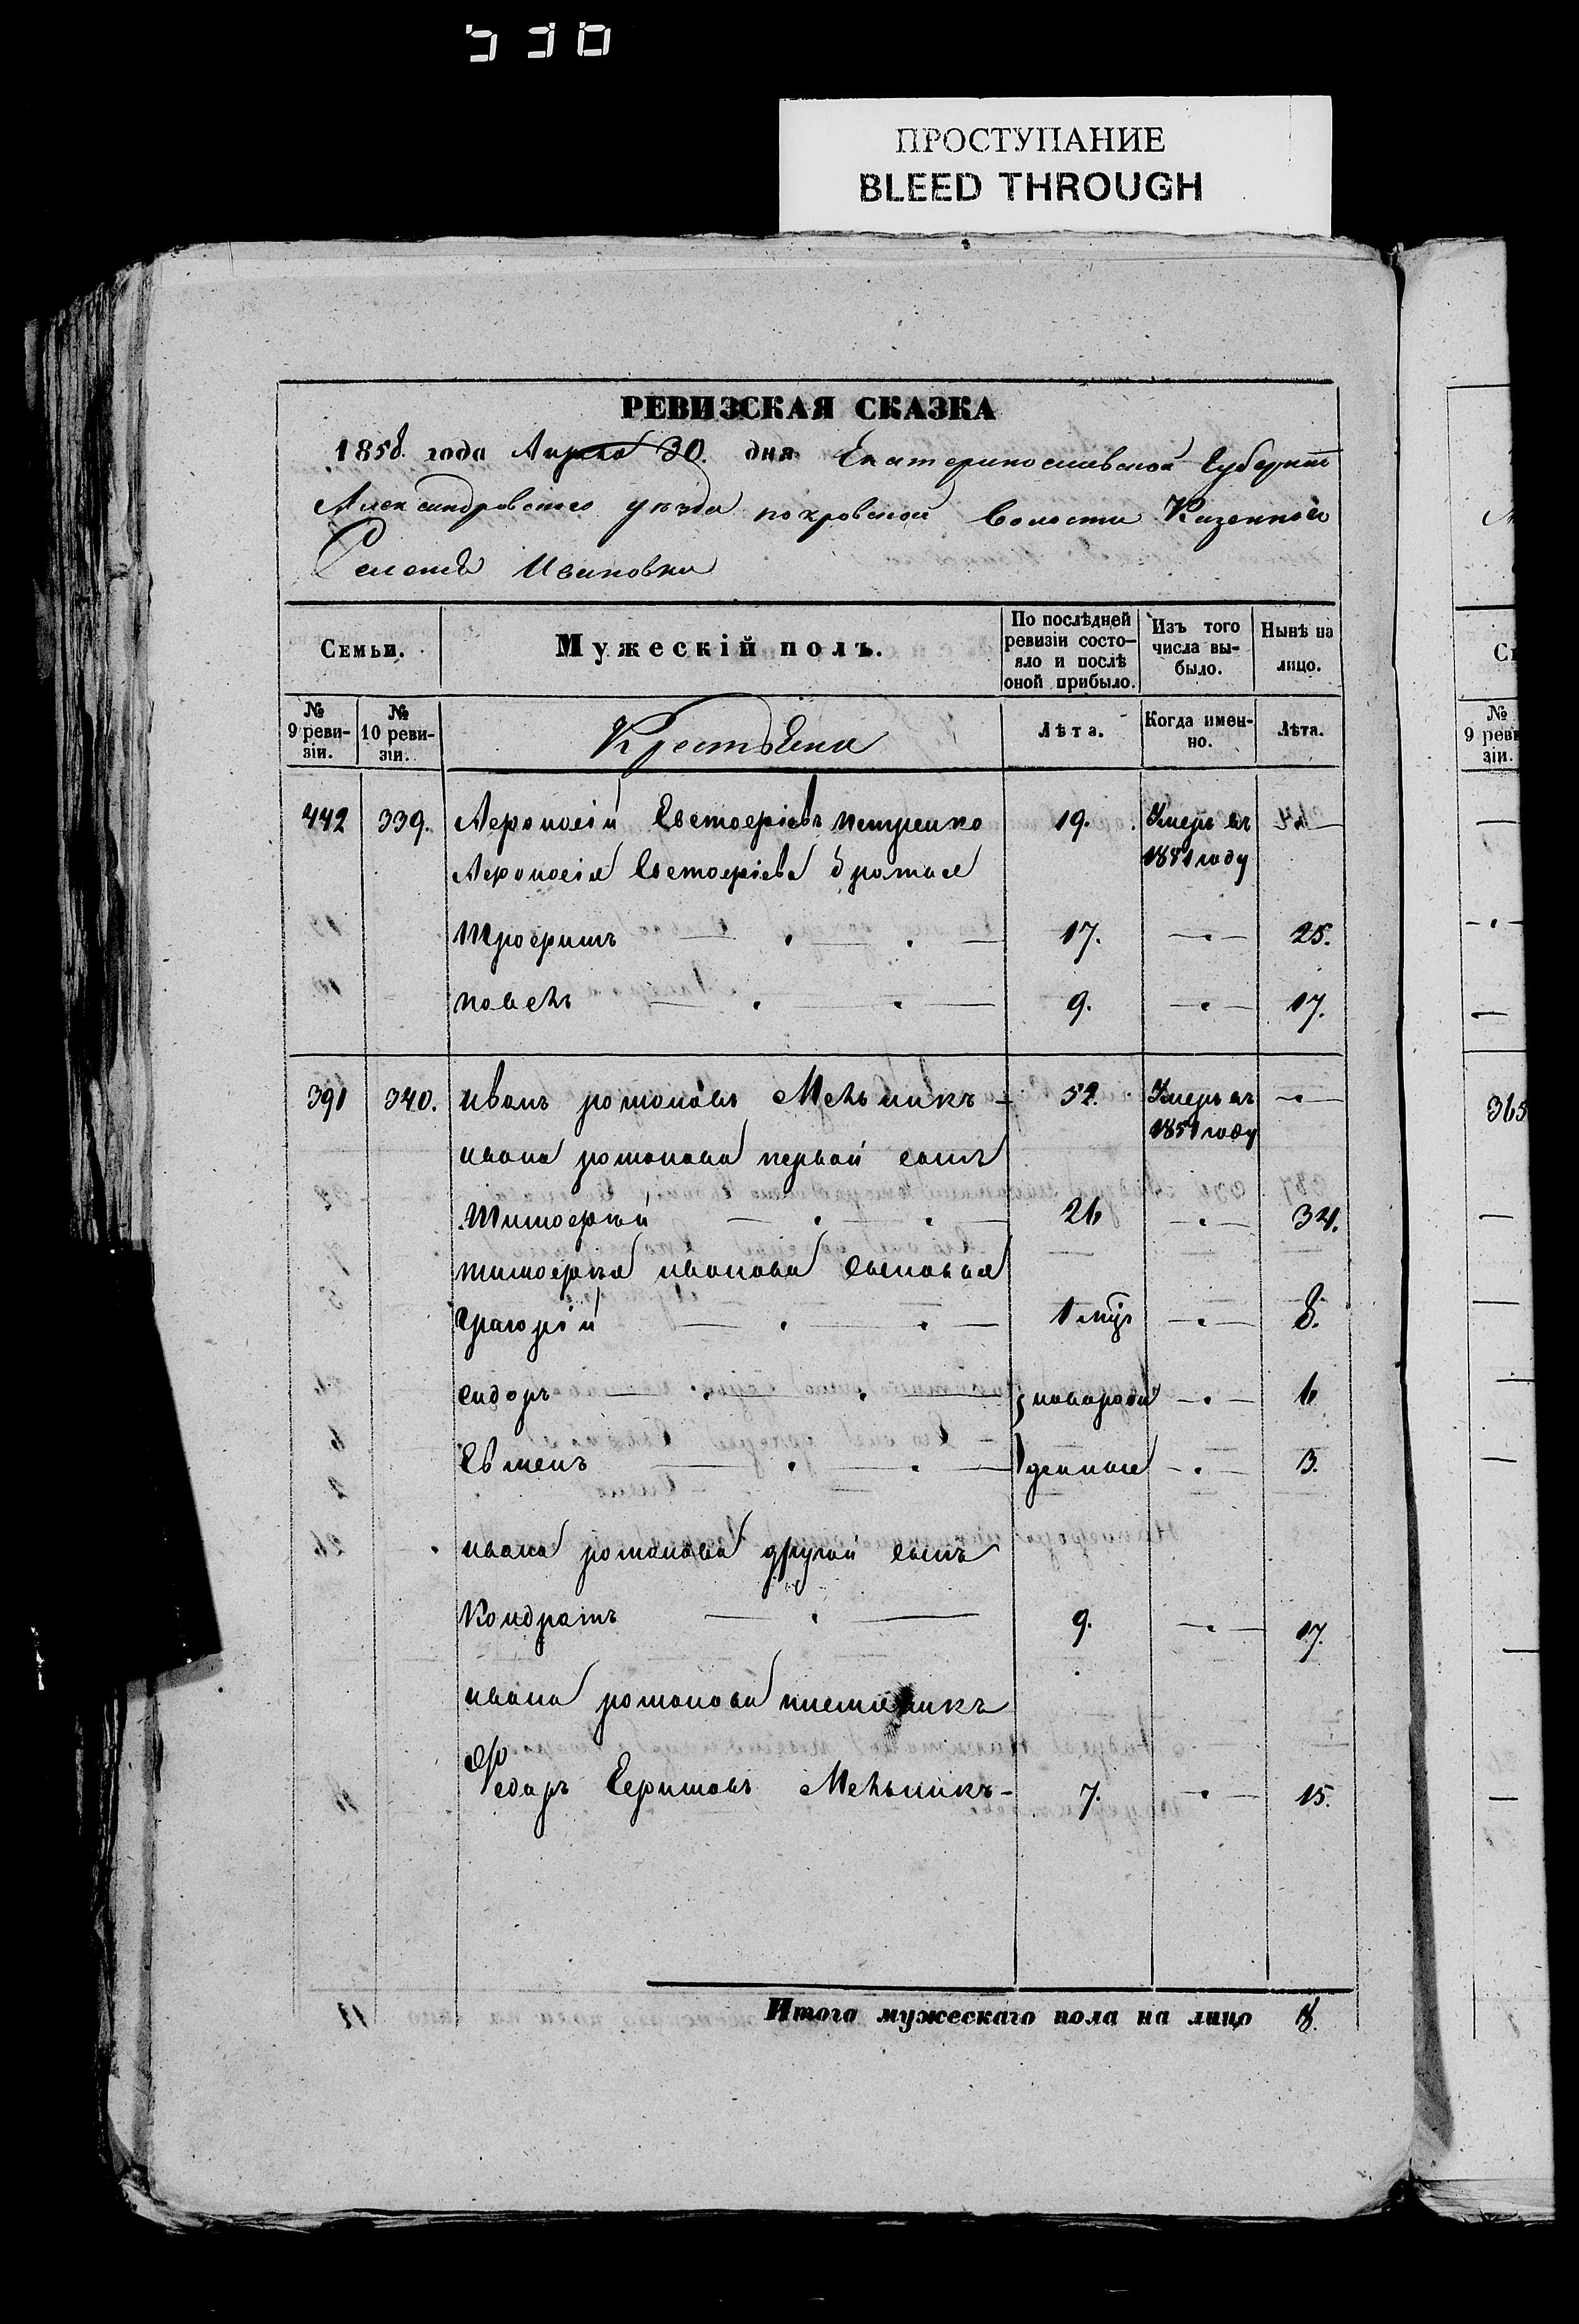 530
ПРОСТУПАНИЕ
BLEED THROUGH
РЕВИЗСКАЯ СКАЗКА
1858. года Апреля 30. дня Екатеринославской Губернии
Александровскаго уезда покровской волости Казеннаго
Селенія Ивановки
Семьи. Мужескій полъ. По послѣдней ревизіи состо-яло и послѣ оной прибыло. Изъ того числа вы-было. Нынѣ на лицо.
№ 9 реви-зіи. № 10 реви-зіи. Крестьяни Лѣта. Когда имен-но. Лѣта.
442 339. Афонасій Евстафіевъ Петренко 19. Умеръ въ
Афонасія Евстафіева братья 1851 году
Трофимъ 17. 25.
павель 9. 17.
391 340. иванъ романовъ Мельникъ 52. Умеръ въ
ивана романова первой сынъ 1851 году
Тимофей 26 34.
тимофея иванова сыновья
Григорій 8.
сидоръ новорож 6
Евменъ денные 3.
ивана романова другой сынъ
Кондратъ 9. 17.
ивана романова племяникъ
Федоръ Ефимовъ Мельникъ 7. 15.
Итого мужескаго пола на лицо 8.
№ 9 реви зіи.
365